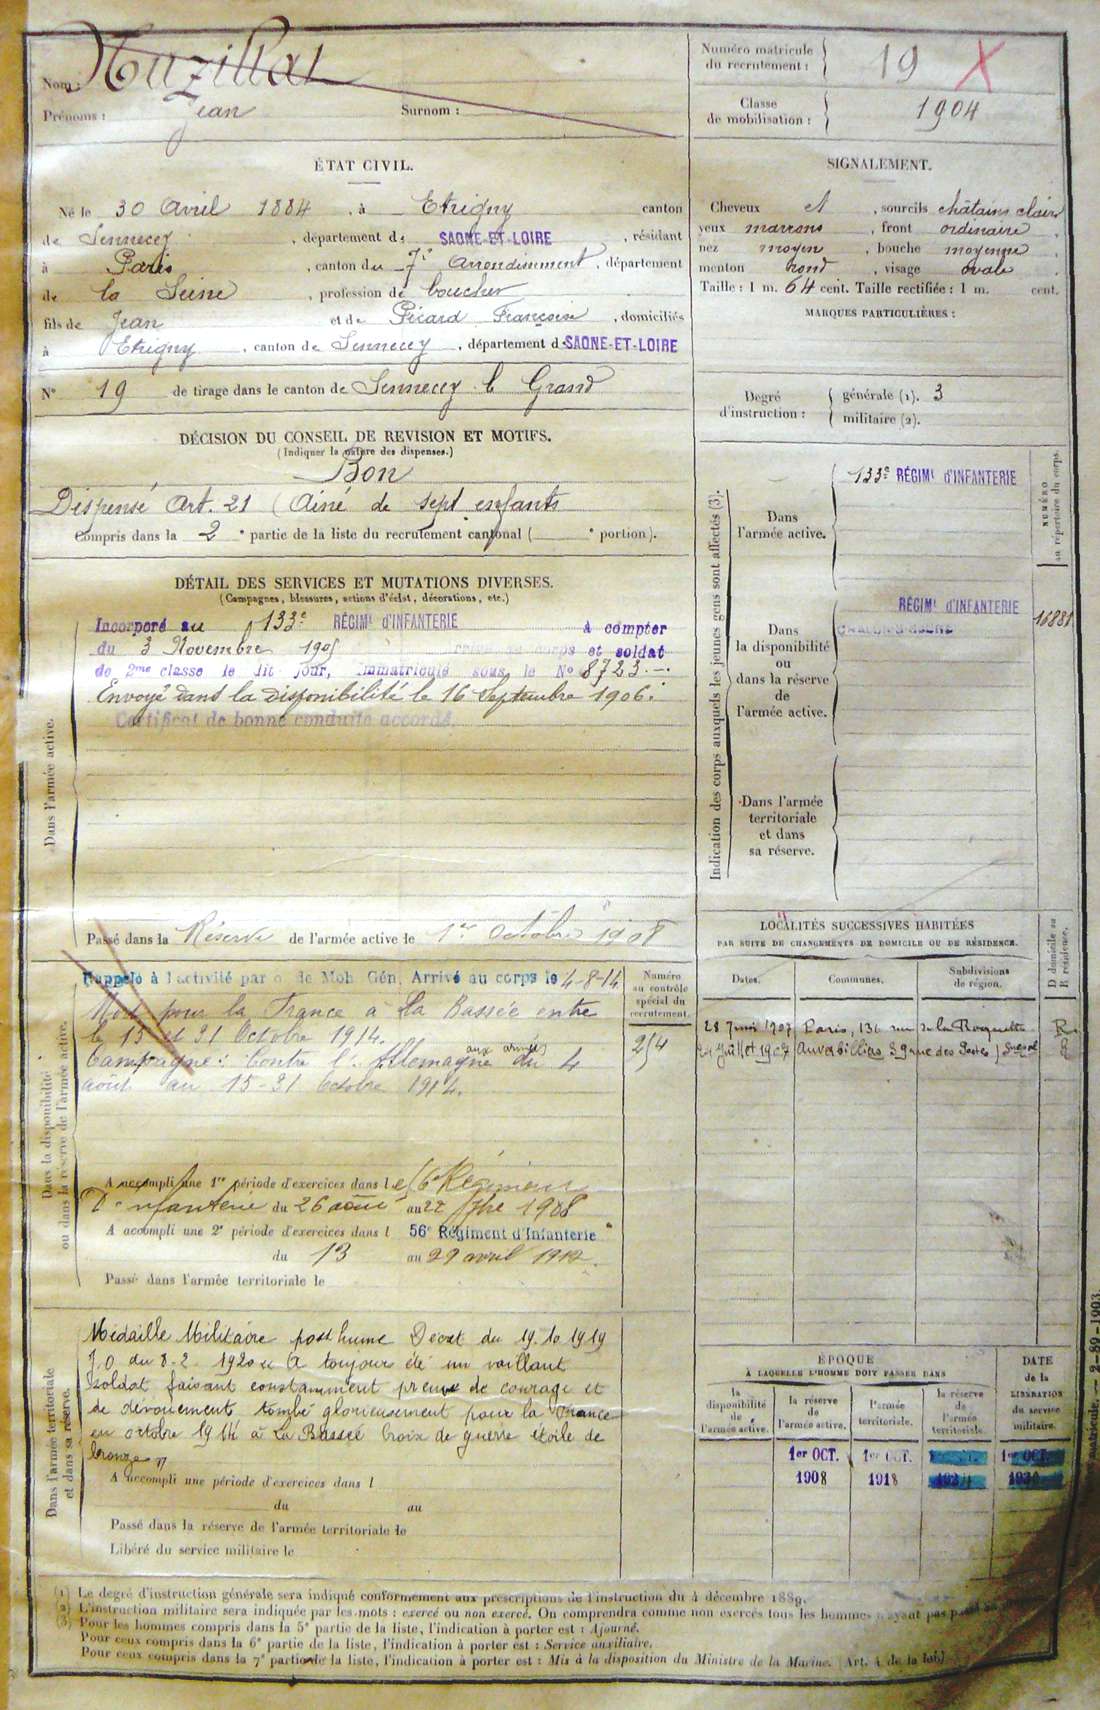 Nom : Nuzillat
Prénoms : Jean Surnom :
Numéro matricule du recrutement : 19 X
Classe de mobilisation : 1904
ÉTAT CIVIL.
Né le 30 Avril 1884, à Etrigny canton
de Sennecey, département de SAONE-ET-LOIRE, résidant
à Paris, canton du 7e Arrondissement, département
de la Seine, profession de boucher
fils de Jean et de Picard Françoise, domiciliés
à Etrigny, canton de Sennecey, département d SAONE-ET-LOIRE
N° 19 de tirage dans le canton de Sennecey le Grand
SIGNALEMENT.
Cheveux et, sourcils châtains clairs
yeux marrons, front ordinaire,
nez moyen, bouche moyenne,
menton rond, visage ovale.
Taille : 1 m. 64 cent. Taille rectifiée : 1 m. cent.
MARQUES PARTICULIÈRES :
Degré d'instruction : générale (1). 3
militaire (2).
DÉCISION DU CONSEIL DE REVISION ET MOTIFS.
(Indiquer la nature des dispenses.)
Bon
Dispensé Art. 21 (Ainé de sept enfants
Compris dans la 2e partie de la liste du recrutement cantonal ( e portion).
DÉTAIL DES SERVICES ET MUTATIONS DIVERSES.
(Campagnes, blessures, actions d'éclat, décorations, etc.)
Dans l'armée active.
Incorporé au 133e RÉGIMt D'INFANTERIE à compter
du 3 Novembre 1905 Arrivé au corps et soldat
de 2me classe le dit jour, Immatriculé sous le No 8723.-.
Envoyé dans la disponibilité le 16 Septembre 1906.
Certificat de bonne conduite accordé.
Passé dans la Réserve de l'armée active le 1er Octobre 1908
Indication des corps auxquels les jeunes gens sont affectés (3).
NUMÉRO au répertoire du corps.
Dans l'armée active.
133e RÉGIMt D'INFANTERIE
Dans la disponibilité ou dans la réserve de l'armée active.
RÉGIMt D'INFANTERIE
CHALON-S-SAONE
Dans l'armée territoriale et dans sa réserve.
Dans la disponibilité ou dans la réserve de l'armée active.
Rappelé à l'activité par o de Mob Gén. Arrivé au corps le 4-8-14
Mort pour la France à La Bassée entre
le 15 et 31 Octobre 1914.
Campagne : Contre l'Allemagne aux armées du 4
août au 15-31 Octobre 1914.
Numéro au contrôle spécial du recrutement.
254
A accompli une 1re période d'exercices dans le 56e Régiment
D'infanterie du 26 août au 22 7bre 1908
A accompli une 2e période d'exercices dans l 56e Régiment d'Infanterie
du 13 au 29 avril 1912.
Passé dans l'armée territoriale le
LOCALITÉS SUCCESSIVES HABITÉES
PAR SUITE DE CHANGEMENTS DE DOMICILE OU DE RÉSIDENCE.
Dates. Communes. Subdivisions de région. D domicile ou R résidence.
28 Juin 1907 Paris, 136 rue de la Roquette R
24 Juillet 1907 Aubervilliers 39 rue des Postes
Dans l'armée territoriale et dans sa réserve.
Médaille Militaire posthume Décret du 19.10.1919
J.O du 8-2-1920 « A toujours été un vaillant
soldat faisant constamment preuve de courage et
de dévouement tombé glorieusement pour la France
en octobre 1914 à La Bassée Croix de guerre étoile de
bronze »
A accompli une période d'exercices dans l
du au
Passé dans la réserve de l'armée territoriale le
Libéré du service militaire le
ÉPOQUE
À LAQUELLE L'HOMME DOIT PASSER DANS
la disponibilité de l'armée active.
la réserve de l'armée active.
l'armée territoriale.
la réserve de l'armée territoriale.
DATE de la LIBÉRATION du service militaire.
1er OCT. 1er OCT. 1er OCT.
1908 1918
(1) Le degré d'instruction générale sera indiqué conformément aux prescriptions de l'instruction du 4 décembre 1889.
(2) L'instruction militaire sera indiquée par les mots : exercé ou non exercé. On comprendra comme non exercés tous les hommes n'ayant pas
(3) Pour les hommes compris dans la 5e partie de la liste, l'indication à porter est : Ajourné.
Pour ceux compris dans la 6e partie de la liste, l'indication à porter est : Service auxiliaire.
Pour ceux compris dans la 7e partie de la liste, l'indication à porter est : Mis à la disposition du Ministre de la Marine. (Art. 4 de la loi).